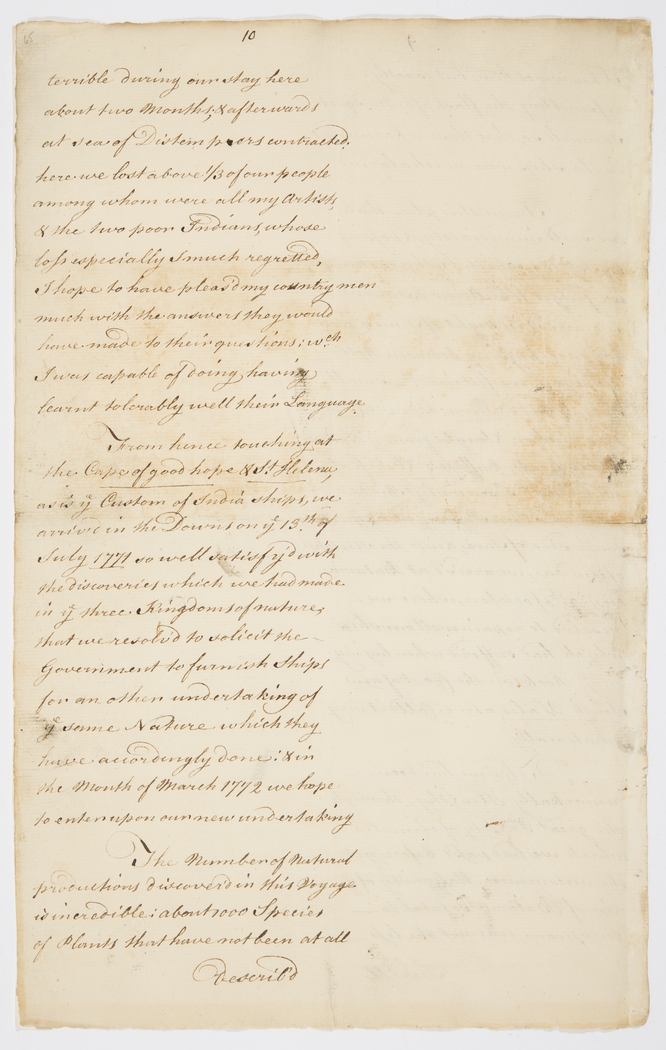 10
terrible during our stay here
about two Months, & afterwards
at sea of Distempers contracted.
here we lost above 1/3 of our people
among whom were all my Artists,
& the two poor Indians, whose
loss especially I much regretted,
I hope to have pleas'd my country men
much with the answers they would
have made to their questions; wch
I was capable of doing, having
learnt tolerably well their Language
From hence touching at
the Cape of good hope & St. Helena,
as is ye Custom of India ships, we
arrive in the Downs on ye 13th of
July 1771 so well satisfy'd with
the discoveries which we had made
in ye three Kingdoms of nature,
that we resolv'd to solicit the
Government to furnish Ships
for an other undertaking of
ye same Nature which they
have accordingly done: & in
the Month of March 1772 we hope
to enter upon our new undertaking
The Number of Natural
productions discover'd in this Voyage
is incredible: about 1000 Species
of Plants that have not been at all
Describ'd